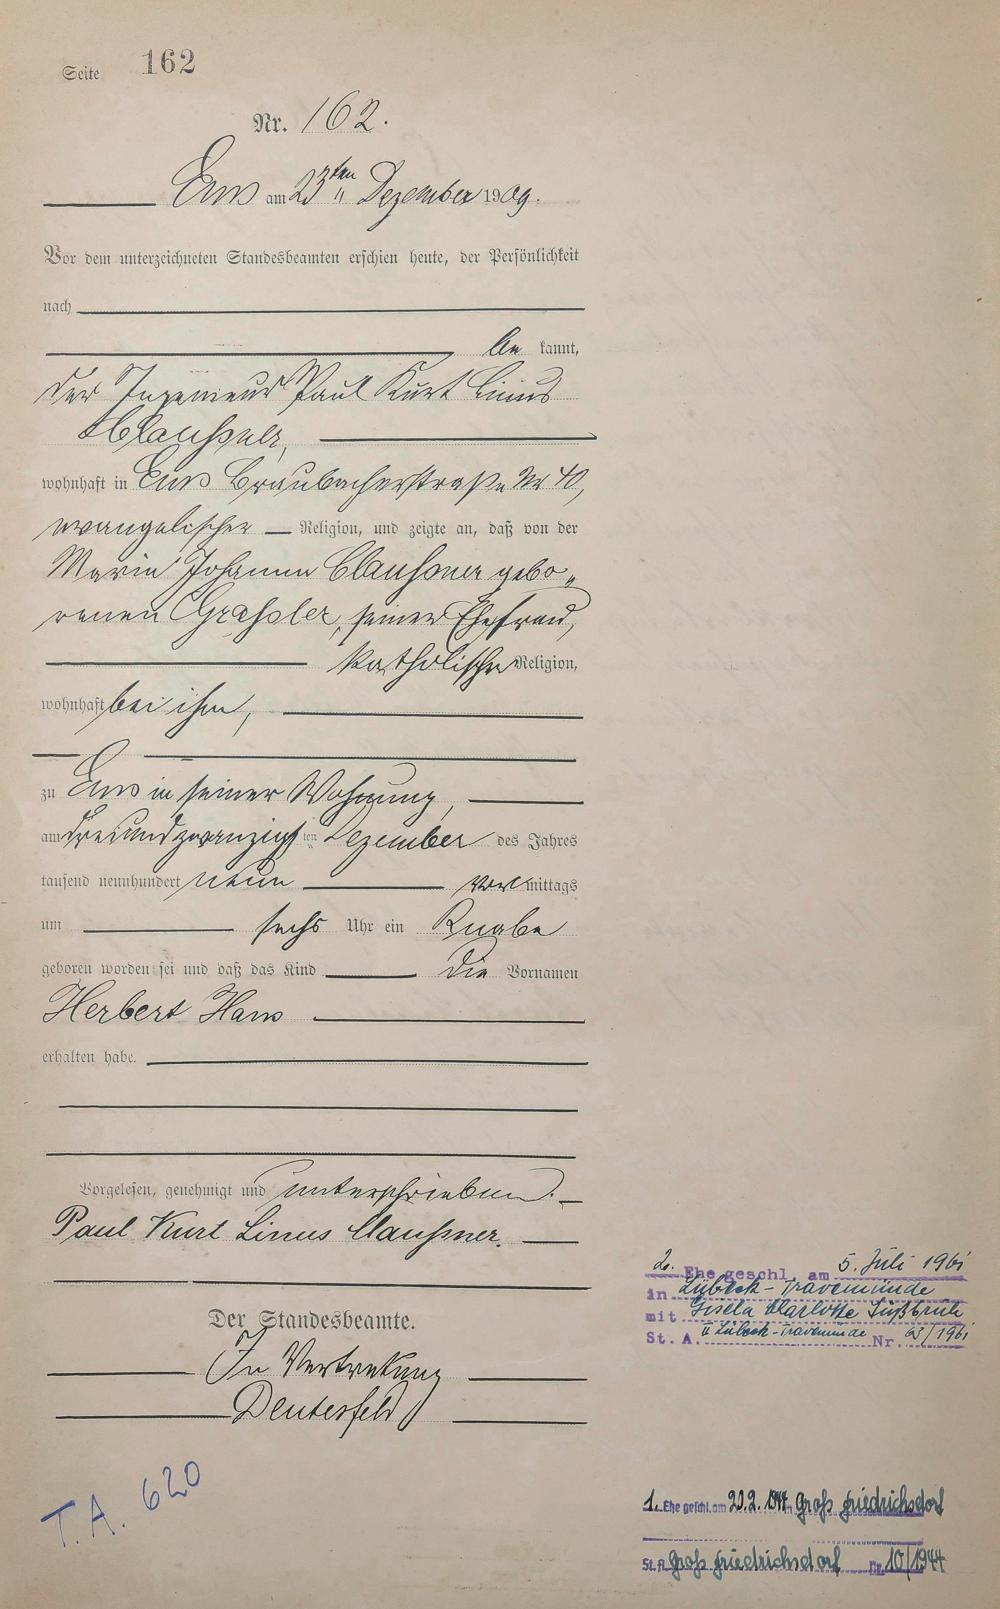 Seite 162
Nr. 162.
Ems am 23ten Dezember 1909.
Vor dem unterzeichneten Standesbeamten erschien heute, der Persönlichkeit
nach
be kannt,
der Ingenieur Paul Kurt Linus
Claußner,
wohnhaft in Ems Braubacherstraße Nr 40,
evangelischer Religion, und zeigte an, daß von der
Maria Johanna Claußner gebo„
renen Graßler, seiner Ehefrau,
katholischer Religion,
wohnhaft bei ihm,
zu Ems in seiner Wohnung,
am dreiundzwanzigsten Dezember des Jahres
tausend neunhundert neun vormittags
um sechs Uhr ein Knabe
geboren worden sei und daß das Kind die Vornamen
Herbert Hans
erhalten habe.
Vorgelesen, genehmigt und unterschrieben.
Paul Kurt Linus Claußner.
Der Standesbeamte.
In Vertretung
Deutesfeld
T.A. 620
2. Ehe geschl. am 5. Juli 1961
in Lübeck-Travemünde
mit Gisela Charlotte
St. A. II Lübeck-Travemünde Nr. 63/1961
1. Ehe geschl. am 20.2.1944 in Groß Friedrichsdorf
St.A. Groß Friedrichsdorf Nr. 10/1944